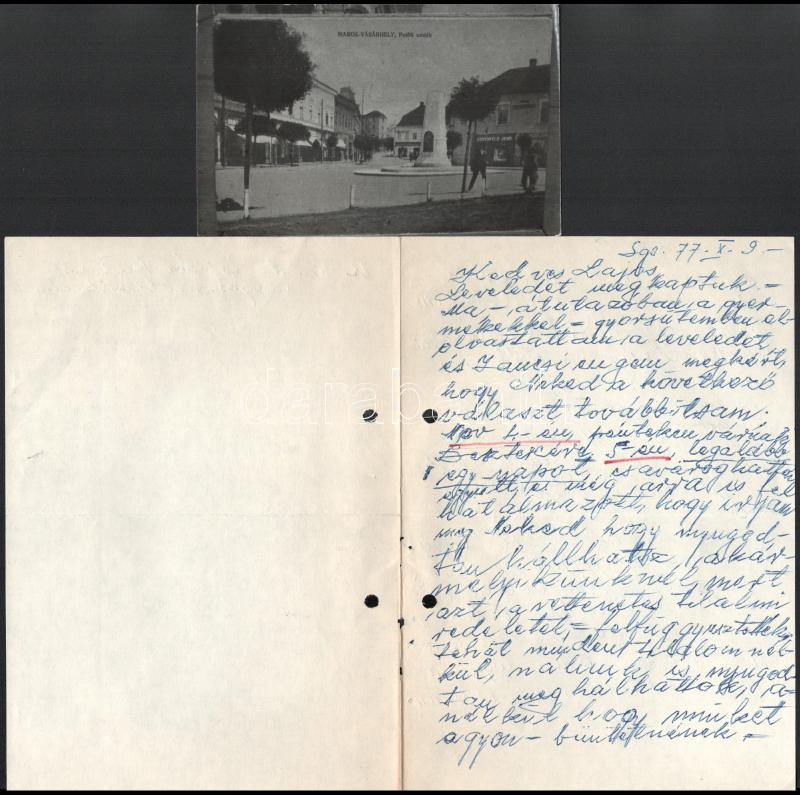 MAROS-VÁSÁRHELY, Petőfi emlék
Sgs. 77-X-9-
Kedves Lajos
Leveledet megkaptuk.=
Ma-, átutazóban, a gyer-
mekekkel,= gyorsütemben el-
olvastattam, a leveledet,
és Jancsi engem megkért,
hogy Neked a következő
választ továbbítsam.
Nov 4.-én, pénteken várnak
5-en, legalább
egy napot, csavaroghattok
együtt, és még arra is fel
hatalmazott, hogy írjam
meg Neked hogy nyugod-
tan hállhatsz, akár-
melyikünknél, mert
azt, a rettenetes tilalmi
rendeletet,= felfüggesztették.
Tehát minden tilalom nél-
kül, nálunk is, nyugod-
tan meghálhattok,
nélkül hogy minket
agyon- büntetnének.=
darabanth